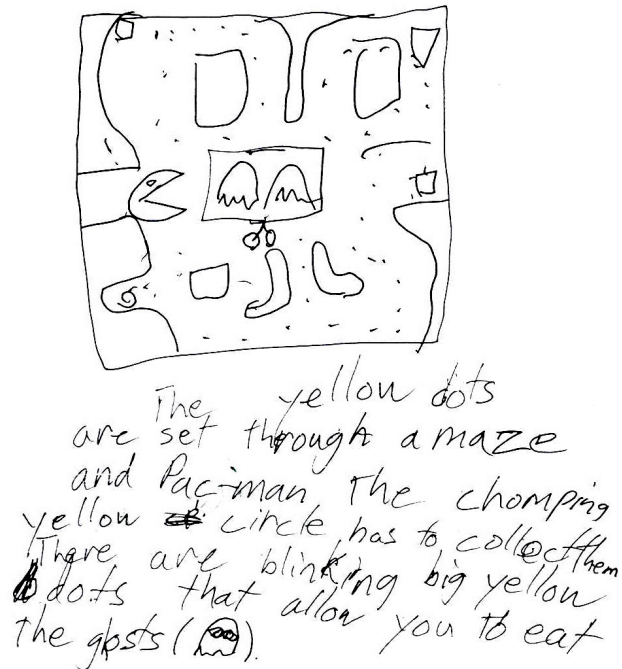 The yellow dots
are set through a maze
and Pac-man The chomping
yellow circle has to collect them
There are blinking big yellow
dots that allow you to eat
the glosts ( ).